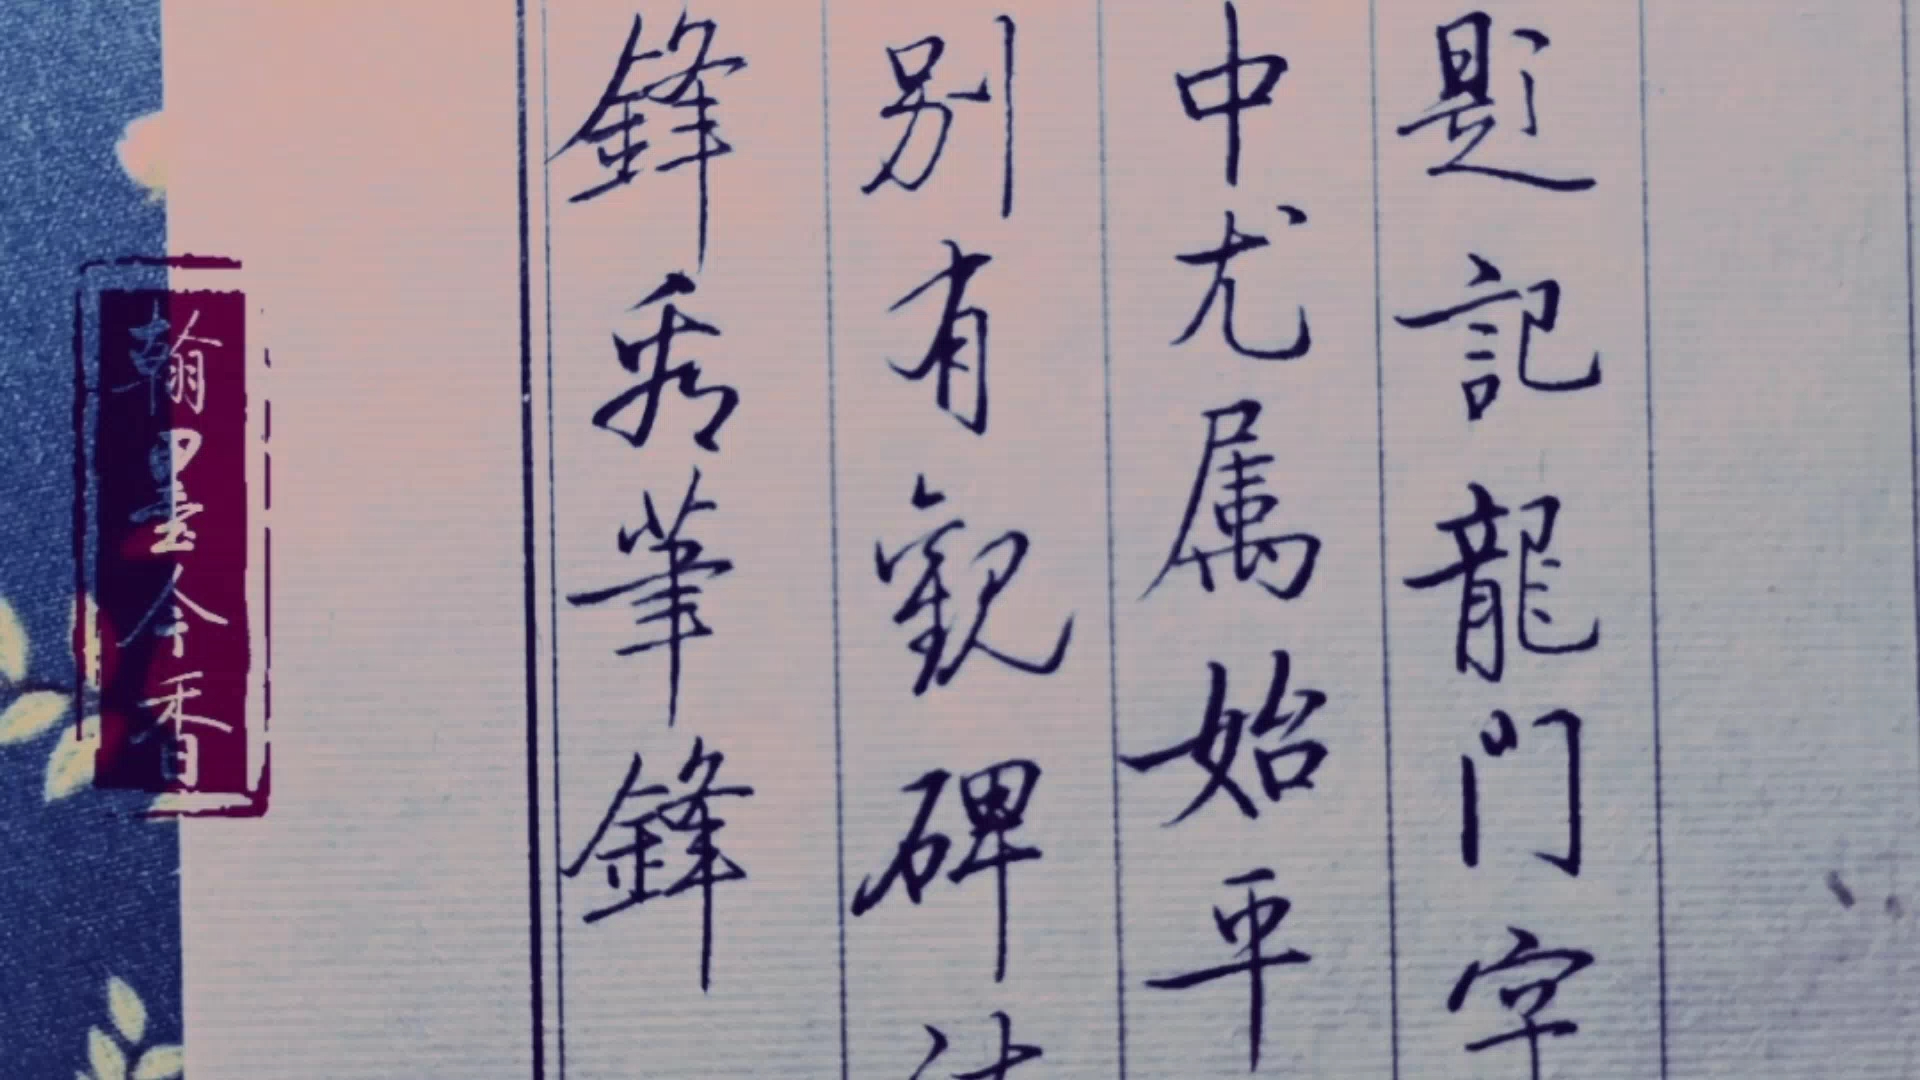 題記龍門字
中尤属始平
别有觀碑
鋒看筆鋒
翰墨今香